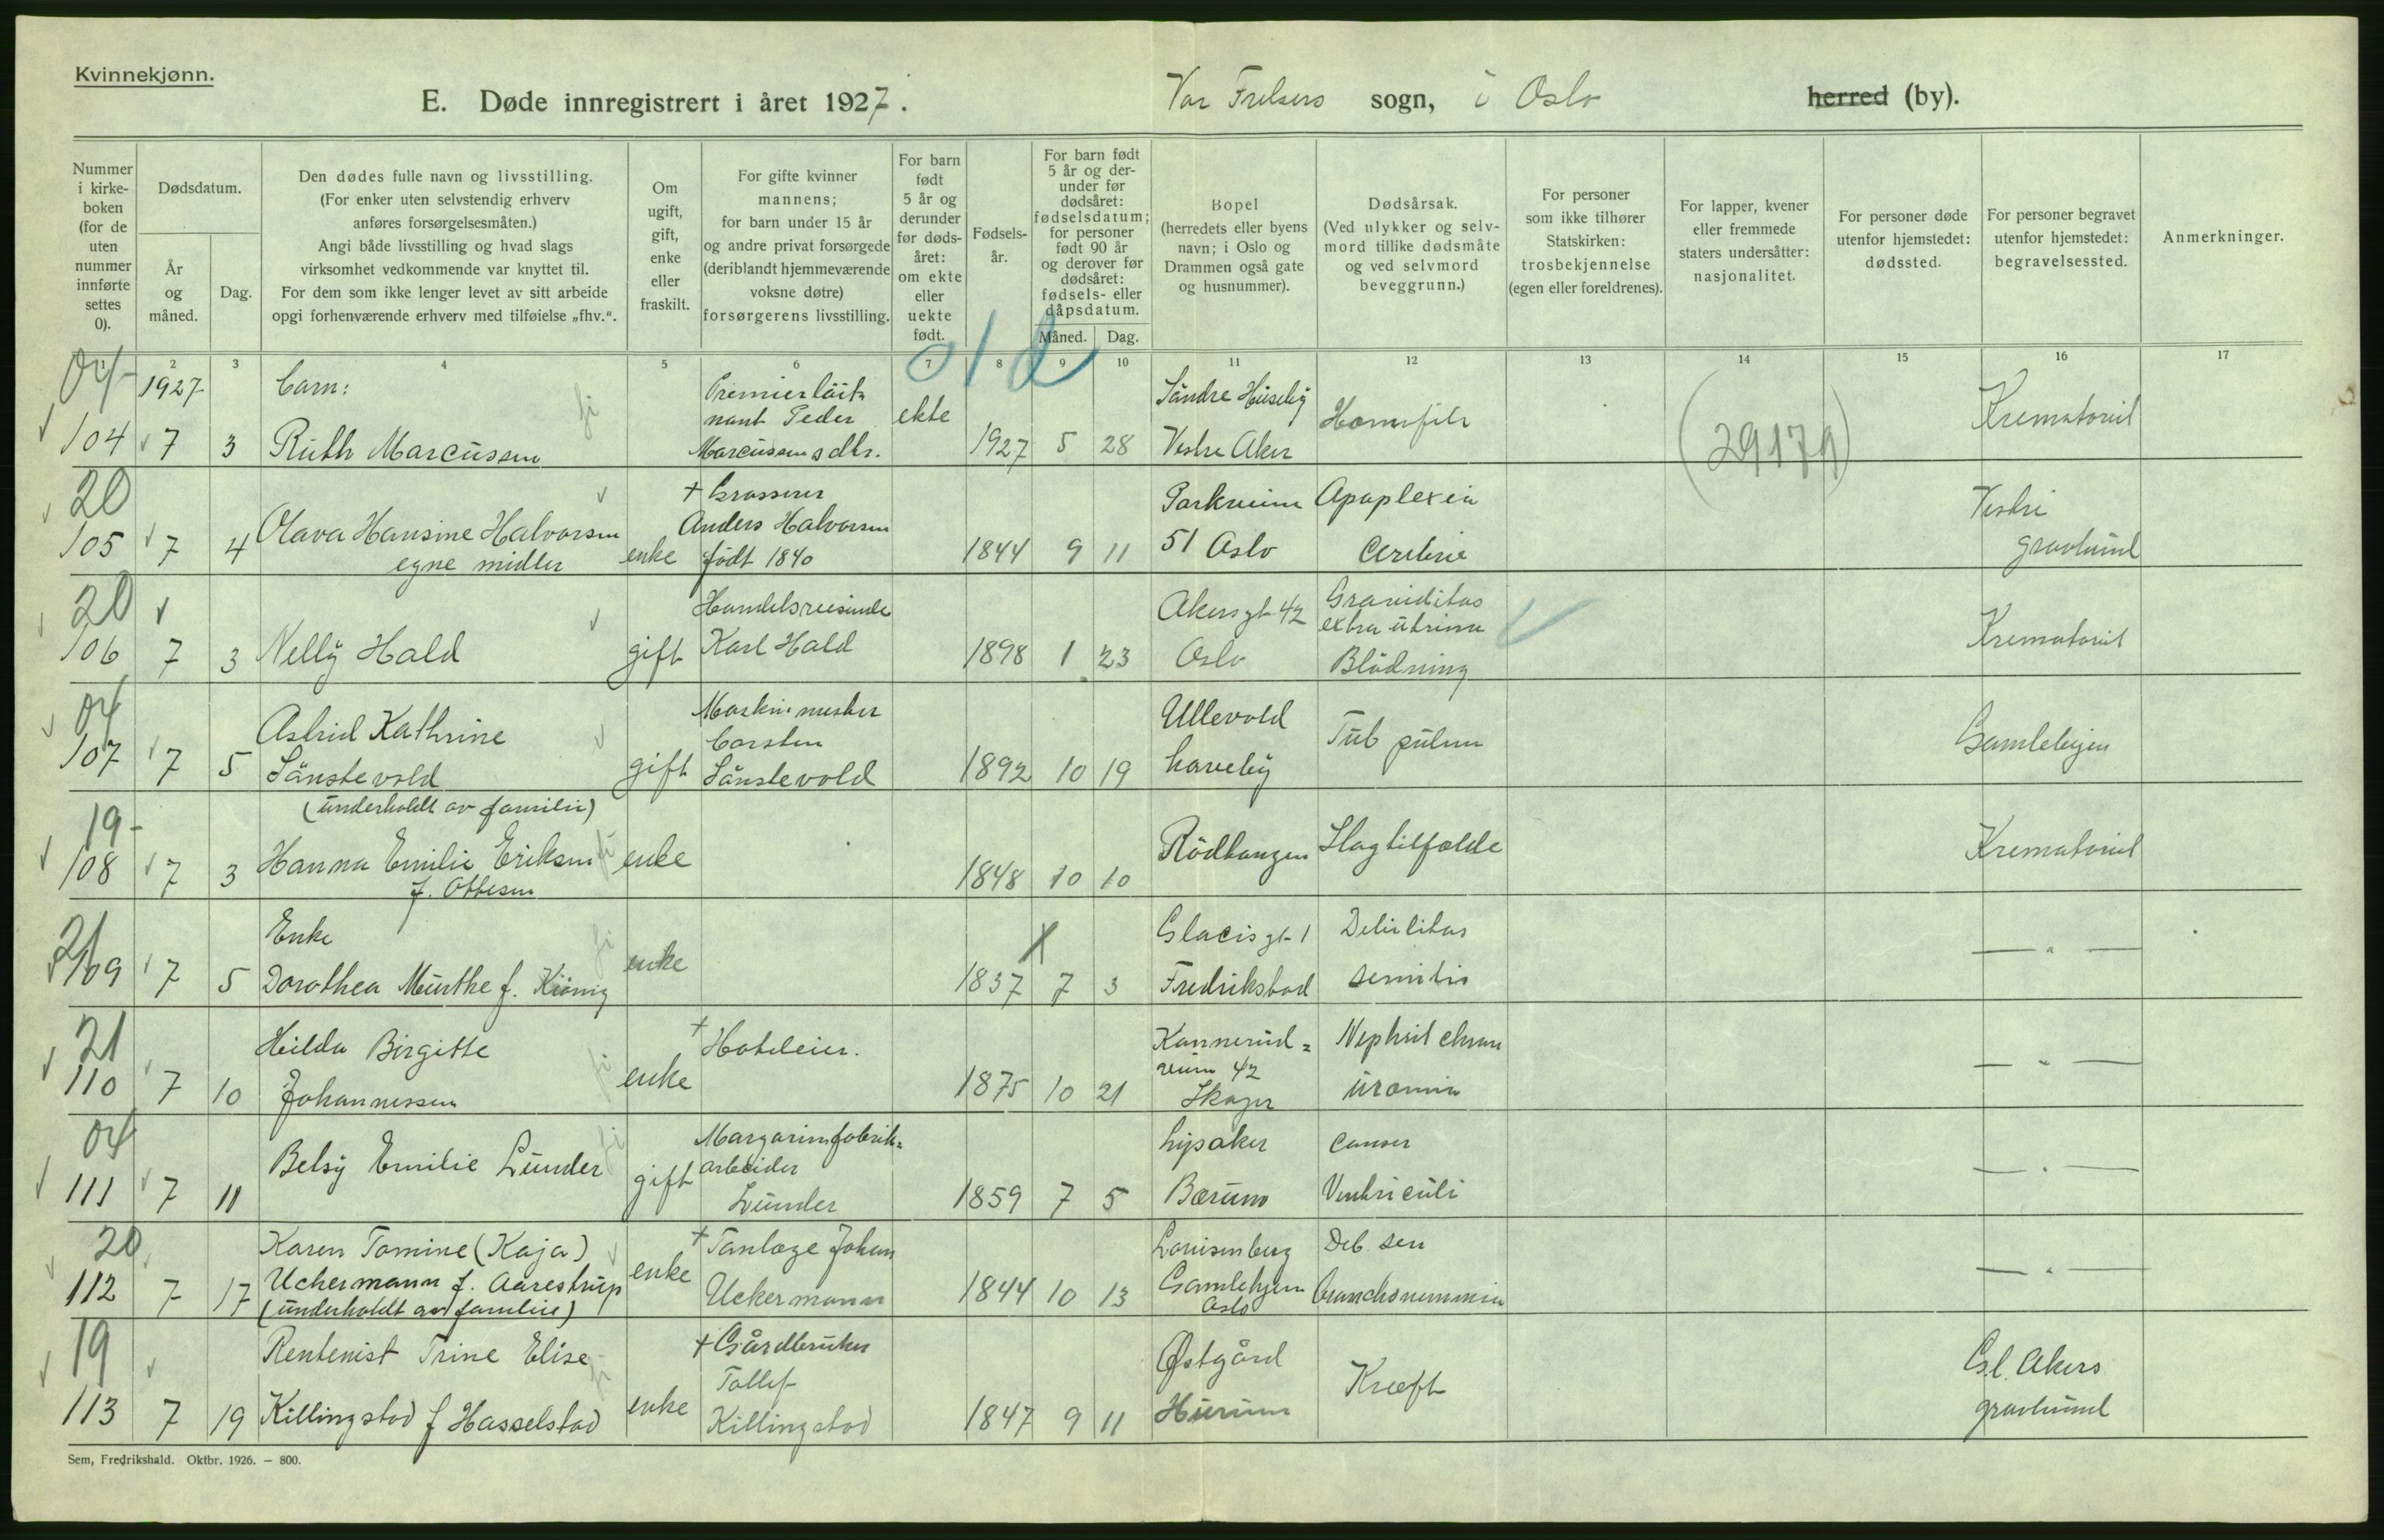 Kvinnekjønn.
E. Døde innregistrert i året 1927.
Vor Frelsers sogn, i Oslo herred (by).
Nummer i kirke- boken (for de uten nummer innførte settes 0).
Dødsdatum.
År og måned.
Dag.
Den dødes fulle navn og livsstilling.
(For enker uten selvstendig erhverv
anføres forsørgelsesmåten.)
Angi både livsstilling og hvad slags
virksomhet vedkommende var knyttet til.
For dem som ikke lenger levet av sitt arbeide
opgi forhenværende erhverv med tilføielse „fhv.“.
Om ugift, gift, enke eller fraskilt.
For gifte kvinner
mannens;
for barn under 15 år
og andre privat forsørgede
(deriblandt hjemmeværende
voksne døtre)
forsørgerens livsstilling.
For barn født 5 år og derunder før døds- året: om ekte eller uekte født.
Fødsels- år.
For barn født 5 år og der- under før dødsåret: fødselsdatum; for personer født 90 år og derover før dødsåret: fødsels- eller dåpsdatum.
Måned. Dag.
Bopel
(herredets eller byens
navn; i Oslo og
Drammen også gate
og husnummer).
Dødsårsak.
(Ved ulykker og selv-
mord tillike dødsmåte
og ved selvmord
beveggrunn.)
For personer
som ikke tilhører
Statskirken:
trosbekjennelse
(egen eller foreldrenes).
For lapper, kvener
eller fremmede
staters undersåtter:
nasjonalitet.
For personer døde
utenfor hjemstedet:
dødssted.
For personer begravet
utenfor hjemstedet:
begravelsessted.
Anmerkninger.
2 3 4 5 6 7 8 9 10 11 12 13 14 15 16 17
old
1927 Barn: Premierløit= Søndre Huseby
nant Peder ekte Krematoriet
104 7 3 Ruth Marcussen Marcussens dtr. 1927 5 28 Vestre Aker (29179)
20 † Grosserer Parkveien Apoplexia Vestre
Olava Hansine Halvorsen Anders Halvorsen
105 7 4 egne midler enke født 1840 1844 9 11 51 Oslo cerebrie gravlund
20 Handelsreisende Akersgt 42 Graviditas
extra uterina
106 7 3 Nelly Hald gift Karl Hald 1898 1 23 Oslo Blødning Krematoriet
Maskinmester Ullevold
Astrid Kathrine Carsten Tub pulm
107 7 5 Sønstevold gift Sønstevold 1892 10 19 haveby Gamlebyen
19 (underholdt av familie)
108 7 3 Hanna Emilie Eriksen enke 1848 10 10 Slagtilfælde Krematoriet
f. Ottesen
21 Enke Glacisgt 1 Debilitas
109 7 5 Dorothea Münthe f. König enke 1837 7 3 Fredrikstad senilis — " —
21 Hilda Birgitte † Hoteleier. Nephrit chron
110 7 10 Johannessen enke 1875 10 21 42 Skøyer uremia — " —
Margarinfabrik= Lysaker cancer
Betsy Emilie Lunder arbeider
111 7 11 gift Lunder 1859 7 5 Bærum Ventriculi — " —
20 Karen Tomine (Kaja) † Tanlæge Johan Louisenberg Deb. sen
112 7 17 Uchermann f. Aarestrup enke Uckermann 1844 10 13 Gamlehjem — " —
(underholdt av familie) Oslo
19 Rentenist Trine Elise † Gårdbruker Østgård Gl. Akers
Tollef Kræft
113 7 19 Killingstad f Hasselstad enke Killingstad 1847 9 11 Hurum gravlund
Sem, Fredrikshald. Oktbr. 1926. — 800.